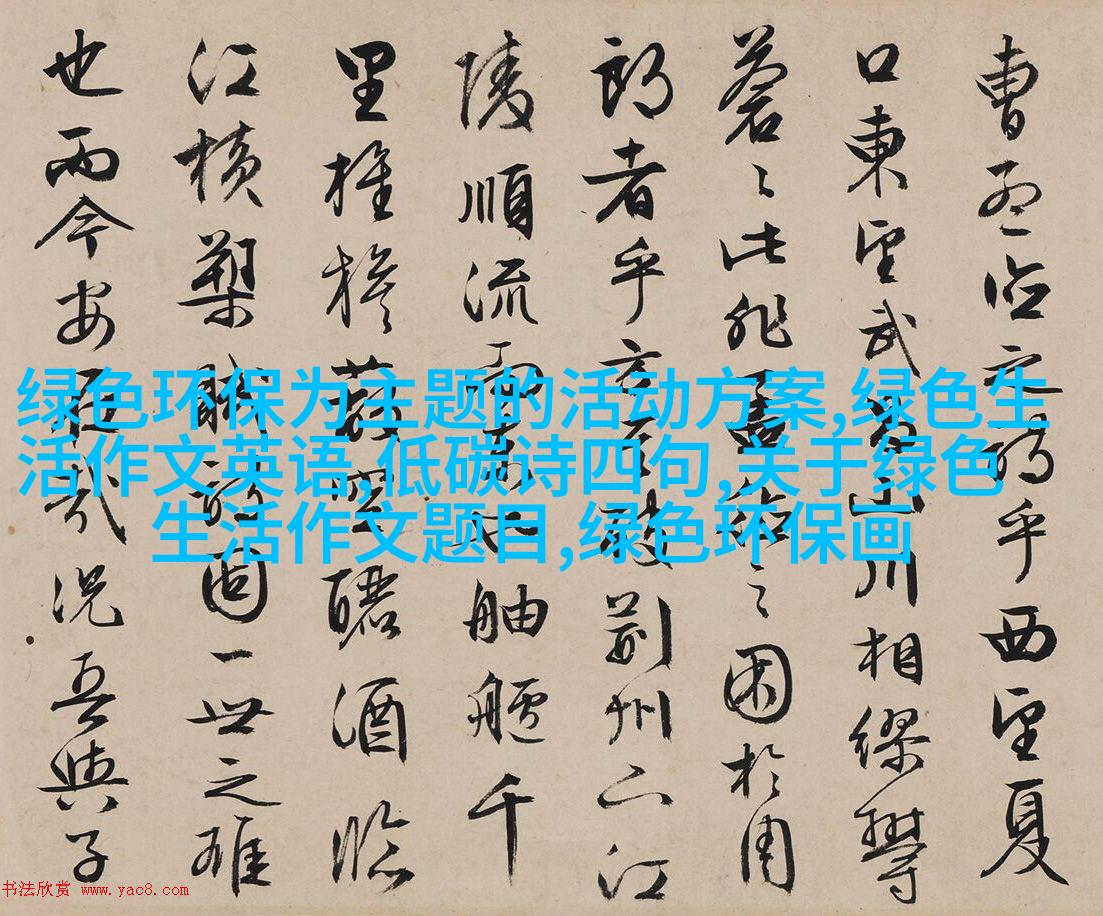 曹孟德之詩乎西望夏
口東望武昌山川相繆鬱
蒼〻此非孟德之困於周
郎者乎方其破荊州下江
陵順流而東也舳艫千
里旌旗蔽空釃酒臨
江橫槊賦詩固一世之雄
也而今安在哉況吾與子
绿色环保为主题的活动方案,绿色生
活作文英语,低碳诗四句,关于绿色
生活作文题目,绿色环保画
书法欣赏 www.yac8.com